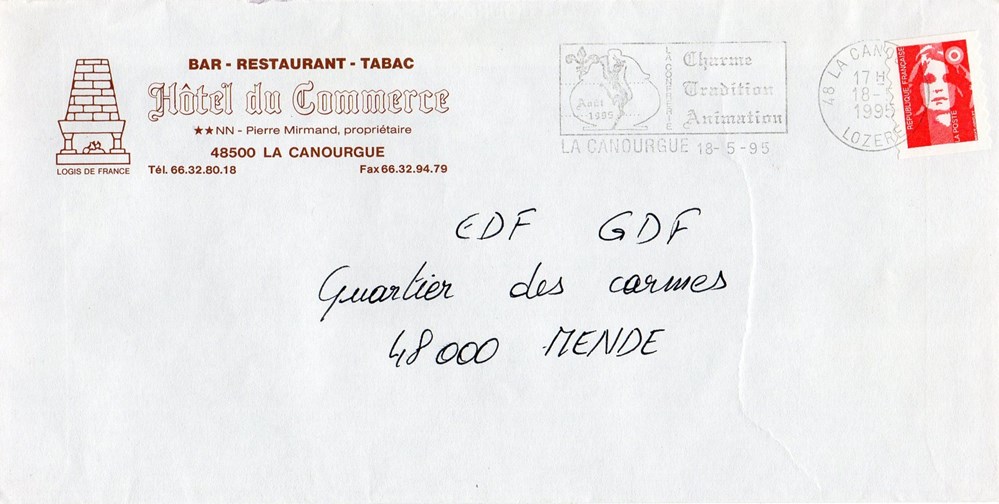 BAR - RESTAURANT - TABAC
Hôtel du Commerce
★★NN - Pierre Mirmand, propriétaire
48500 LA CANOURGUE
Tél. 66.32.80.18 Fax 66.32.94.79
LOGIS DE FRANCE
Août
1995
Charme
Tradition
Animation
LA CANOURGUE 18-5-95
48 LA CANO
17 H
18-5
1995
LOZERE
REPUBLIQUE FRANÇAISE
LA POSTE
EDF GDF
Quartier des carmes
48000 MENDE